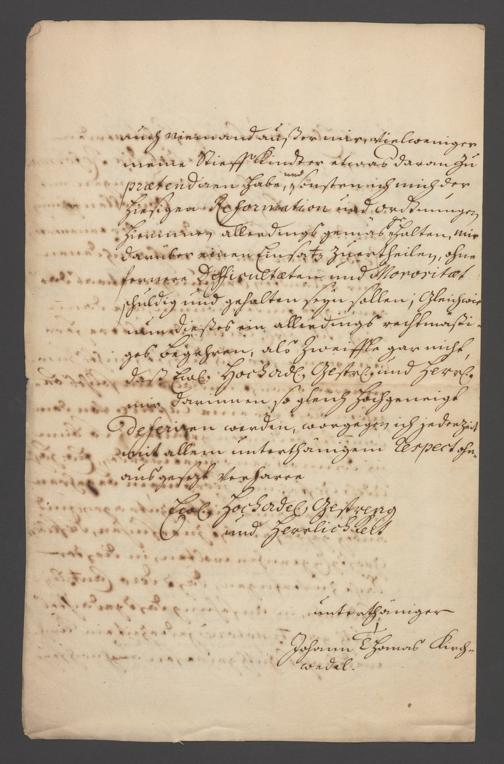 auch niemand außer mir, vielweniger
meine Stieff Kinder etwas daran zu
prætendiren habe, und sonsten ich mich der
hiesigen Reformation und Ordnungen
hierinnen allerdings gemäs halten, mir
darüber einen Einsatz zuertheilen, ohne
fernere Difficultæten und Morositæt
schuldig und gehalten seyn sollen; Gleichwie
nun dießes ein allerdings rechtmäßi-
ges begehren, als zweiffle gar nicht,
daß Ewl. Hochadel. Gestrl. und Herrl.
mir darinnen so gleich hochgeneigt
deferiren werden, worgegen ich jederzeit
mit allem unterthänigem Respect ohn-
ausgesetzt verharre
Ewl. Hochadel. Gestreng
und Herrlichkeit
unterthäniger
Johann Thomas Kirch-
wedel.